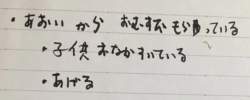 ・すおいい から おむすび もらっている
・子供 おなかすいている
・あげる